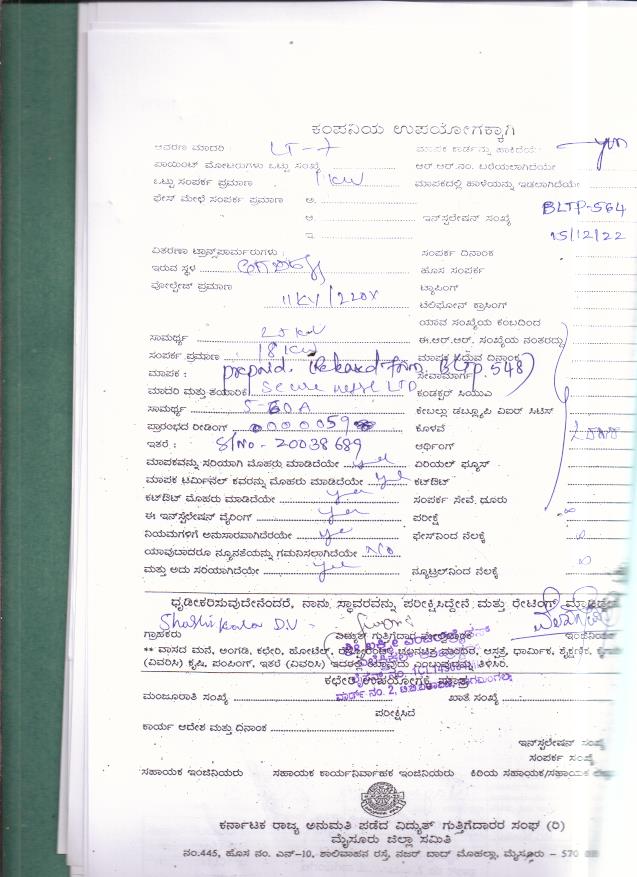 ಕಂಪನಿಯ ಉಪಯೋಗಕ್ಕಾಗಿ
ಆವರಣ ಮಾದರಿ : LT-7 ಮಾಪಕ ಕಾರ್ಡನ್ನು ಹಾಕಿದೆಯೇ
ಪಾಯಿಂಟ್ ಮೋಟರುಗಳು ಒಟ್ಟು ಸಂಖ್ಯೆ ಆರ್.ಆರ್.ನಂ. ಬರೆಯಲಾಗಿದೆಯೇ
ಒಟ್ಟು ಸಂಪರ್ಕ ಪ್ರಮಾಣ 1 KW ಮಾಪಕದಲ್ಲಿ ಹಾಳೆಯನ್ನು ಇಡಲಾಗಿದೆಯೇ
ಫೇಸ್ ಮೇಳೆ ಸಂಪರ್ಕ ಪ್ರಮಾಣ ಅ. BLTP-564
ಆ. ಇನ್‌ಸ್ಟಲೇಷನ್ ಸಂಖ್ಯೆ
ಇ. 15/12/22
ವಿತರಣಾ ಟ್ರಾನ್ಸ್‌ಫಾರ್ಮರುಗಳು : ಸಂಪರ್ಕ ದಿನಾಂಕ
ಇರುವ ಸ್ಥಳ ಹೊಸ ಸಂಪರ್ಕ
ವೋಲ್ಟೇಜ್ ಪ್ರಮಾಣ ಟ್ಯಾಪಿಂಗ್
11KV/220V ಟೆಲಿಫೋನ್ ಕ್ರಾಸಿಂಗ್
ಯಾವ ಸಂಖ್ಯೆಯ ಕಂಬದಿಂದ
ಸಾಮರ್ಥ್ಯ ಈ.ಆರ್.ಆರ್. ಸಂಖ್ಯೆಯ ನಂತರದ್ದು
ಸಂಪರ್ಕ ಪ್ರಮಾಣ 18 KW ಮಾಪಕ ದಿನಾಂಕ
ಮಾಪಕ : prepaid. (Released from BLTP.548) ಸೇವಾಮಾರ್ಗ
ಮಾದರಿ ಮತ್ತು ತಯಾರಿಕ Secure LTD ಕಂಡಕ್ಟರ್ ಸಿಯುಎ
ಸಾಮರ್ಥ್ಯ 5-60A ಕೇಬಲ್ಲು ಡಬ್ಲ್ಯೂಪಿ ವಿಐರ್ ಸಿಟಿಸಿ
ಪ್ರಾರಂಭದ ರೀಡಿಂಗ್ ಕೊಳವೆ
ಇತರೆ : S/No - 20038689 ಅರ್ಥಿಂಗ್
ಮಾಪಕವನ್ನು ಸರಿಯಾಗಿ ಮೊಹರು ಮಾಡಿದೆಯೇ yes ಏರಿಯಲ್ ಫ್ಯೂಸ್
ಮಾಪಕ ಟರ್ಮಿನಲ್ ಕವರನ್ನು ಮೊಹರು ಮಾಡಿದೆಯೇ yes ಕಟ್‌ಔಟ್
ಕಟ್‌ಔಟ್ ಮೊಹರು ಮಾಡಿದೆಯೇ yes ಸಂಪರ್ಕ ಸೇವೆ ಧೂರು
ಈ ಇನ್‌ಸ್ಟಲೇಷನ್ ವೈರಿಂಗ್ yes ಪರೀಕ್ಷೆ ∞
ನಿಯಮಗಳಿಗೆ ಅನುಸಾರವಾಗಿದೆರೆಯೇ yes ಫೇಸ್‌ನಿಂದ ನೆಲಕ್ಕೆ
ಯಾವುದಾದರೂ ನ್ಯೂನತೆಯನ್ನು ಗಮನಿಸಲಾಗಿದೆಯೇ No
ಮತ್ತು ಅದು ಸರಿಯಾಗಿದೆಯೇ yes ನ್ಯೂಟ್ರಲ್‌ನಿಂದ ನೆಲಕ್ಕೆ
ಧೃಡೀಕರಿಸುವುದೇನೆಂದರೆ, ನಾನು ಸ್ಥಾವರವನ್ನು ಪರೀಕ್ಷಿಸಿದ್ದೇನೆ ಮತ್ತು ರೇಟಿಂಗ್
Shashi Kala D.V
ಗ್ರಾಹಕರು ವಿದ್ಯುತ್ ಗುತ್ತಿಗೆದಾರ
** ವಾಸದ ಮನೆ, ಅಂಗಡಿ, ಕಛೇರಿ, ಹೋಟೆಲ್, ಚಲನಚಿತ್ರ ಮಂದಿರ, ಆಸ್ಪತ್ರೆ, ಧಾರ್ಮಿಕ, ಶೈಕ್ಷಣಿಕ,
(ವಿವರಿಸಿ) ಕೃಷಿ, ಪಂಪಿಂಗ್, ಇತರೆ (ವಿವರಿಸಿ) ಇದರಲ್ಲಿ ಯಾವುದು ಎಂಬುದನ್ನು ತಿಳಿಸಿರಿ.
ಕಛೇರಿ ಉಪಯೋಗಕ್ಕೆ
ಮಂಜೂರಾತಿ ಸಂಖ್ಯೆ ಖಾತೆ ಸಂಖ್ಯೆ
ಪರೀಕ್ಷಿಸಿದೆ
ಕಾರ್ಯ ಆದೇಶ ಮತ್ತು ದಿನಾಂಕ
ಇನ್‌ಸ್ಟಲೇಷನ್ ಸಂಖ್ಯೆ
ಸಂಪರ್ಕ ಸಂಖ್ಯೆ
ಸಹಾಯಕ ಇಂಜಿನಿಯರು ಸಹಾಯಕ ಕಾರ್ಯನಿರ್ವಾಹಕ ಇಂಜಿನಿಯರು ಕಿರಿಯ ಸಹಾಯಕ/ಸಹಾಯಕ
ಕರ್ನಾಟಕ ರಾಜ್ಯ ಅನುಮತಿ ಪಡೆದ ವಿದ್ಯುತ್ ಗುತ್ತಿಗೆದಾರರ ಸಂಘ (ರಿ)
ಮೈಸೂರು ಜಿಲ್ಲಾ ಸಮಿತಿ
ನಂ.445, ಹೊಸ ನಂ. ಎನ್-10, ಶಾಲಿವಾಹನ ರಸ್ತೆ, ನಜರ್ ಬಾದ್ ಮೊಹಲ್ಲಾ, ಮೈಸೂರು - 570